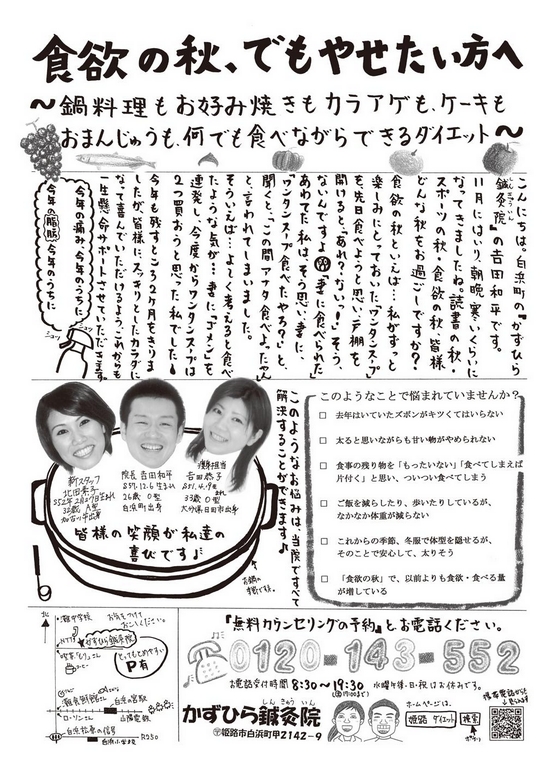 食欲の秋、でもやせたい方へ
～鍋料理もお好み焼きもカラアゲも、ケーキも
おまんじゅうも、何でも食べながらできるダイエット～
こんにちは。白浜町の『かずひら
鍼灸院』の吉田和平です。
しんきゅういん
11月にはいり、朝晩、寒いくらいに
なってきましたね。読書の秋・
スポーツの秋・食欲の秋、皆様
どんな秋をお過ごしですか？
食欲の秋といえば…私がずっと
楽しみにとっておいた「ワンタンスープ」
を、先日食べようと思い、戸棚を
開けると、「あれ？ない…！」そう、
ないんですよ「妻に食べられた」
あわてた私は、そう思い、妻に、
「ワンタンスープ食べたやろ？」と、
聞くと、「この間アンタ食べよったやん」
と、言われてしまいました。
そういえば…よしよく考えると食べ
たような気が…妻に、「ゴメン」を
連発し、今度からワンタンスープは
2つ買おうと思った私でした
今年も残すところ2ヶ月をきりま
したが、皆様に、スッキリとしたカラダに
なって喜んでいただけるよう、これからも
一生懸命サポートさせていただきます。
今年の痛み、今年のうちに
今年の脂肪、今年のうちに
ニョッ
ニョッ
新スタッフ
北田素子
S52年2月27日生まれ
32歳 A型
加古川市出身
院長 吉田和平
S57.12.6生まれ
26歳 O型
白浜町出身
吉田恭子
33歳 O型
大分県日田市出身
皆様の笑顔が私達の
喜びです♪
このようなお悩みは、当院ですべて
解決することができます♪
このようなことで悩まれていませんか？
□ 去年はいていたズボンがキツくてはいらない
□ 太ると思いながらも甘い物がやめられない
□ 食事の残り物を「もったいない」「食べてしまえば
片付く」と思い、ついつい食べてしまう
□ ご飯を減らしたり、歩いたりしているが、
なかなか体重が減らない
□ これからの季節、冬服で体型を隠せるが、
そのことで安心して、太りそう
□ 「食欲の秋」で、以前よりも食欲・食べる量
が増している
北
灘中学校
お気をつけて
おこしください。
NTT
かずひら鍼灸院
喫茶
とってもとめやすい
P有
灘食鮮館さん
白浜の宮駅
ローソンさん
山陽電鉄
白浜松原の信号
白浜小学校
R250
『無料カウンセリングの予約』とお電話ください。
0120-143-552
お電話受付時間 8:30～19:30 水曜午後・日・祝はお休みです。
しんきゅういん
かずひら鍼灸院
〒姫路市白浜町甲2142-9
ホームページは、
姫路 ダイエット 検索
携帯電話からも